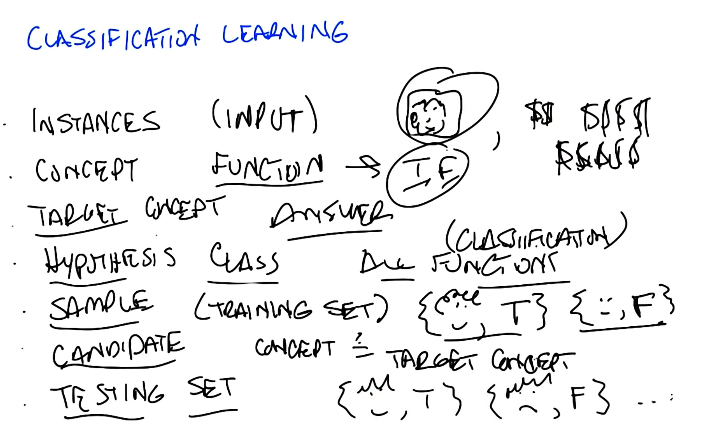 CLASSIFICATION LEARNING
INSTANCES (INPUT) , $$ $$$$
$$$$$
CONCEPT FUNCTION → T, F
TARGET CONCEPT ANSWER
(CLASSIFICATION)
HYPOTHESIS CLASS ALL FUNCTIONS
SAMPLE (TRAINING SET) { , T} { , F}
CANDIDATE CONCEPT ?= TARGET CONCEPT
TESTING SET { , T} { , F} ...